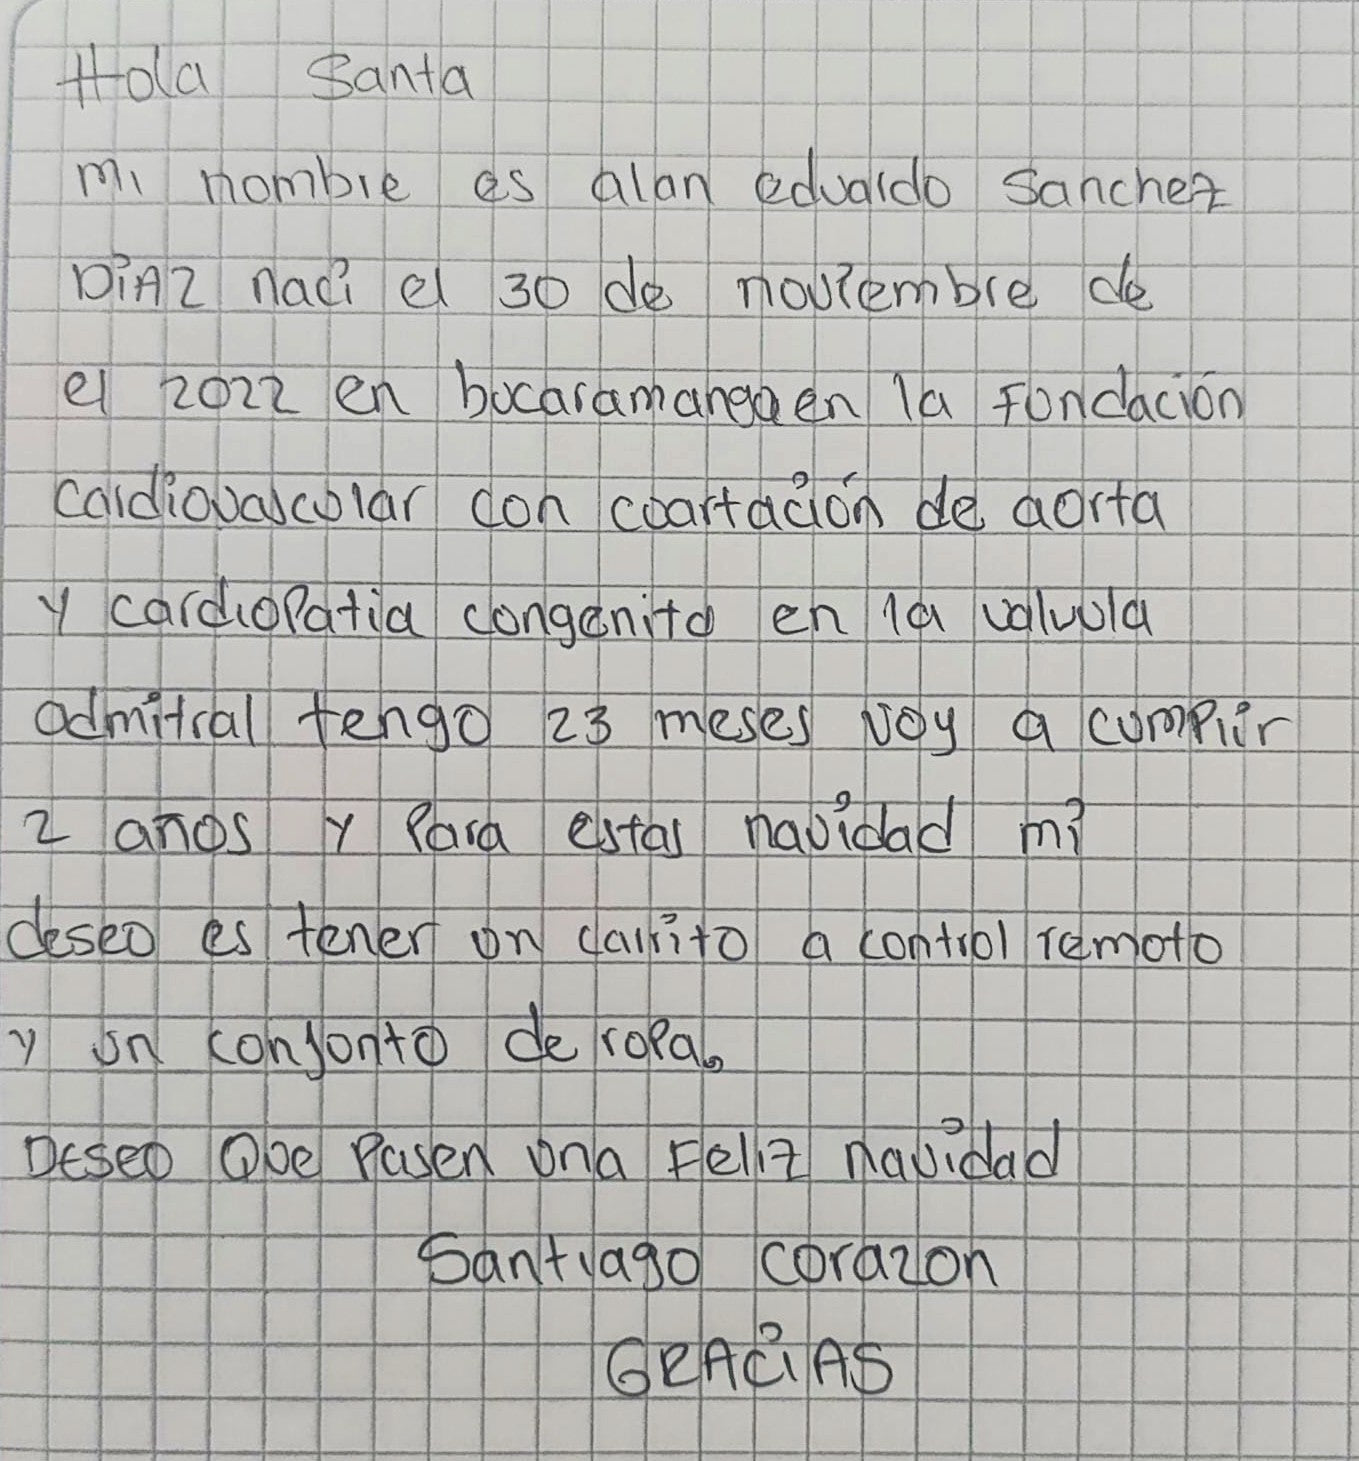 Hola Santa
mi nombre es alan eduardo Sanchez
DiAz naci el 30 de noviembre de
el 2022 en bucaramanga en la Fundación
cardiovascular con coartación de aorta
y cardiopatia congenita en la valvula
admitral tengo 23 meses voy a cumplir
2 años y Para estas navidad mi
deseo es tener un carrito a control remoto
y un conjunto de ropa.
Deseo Que Pasen una Feliz navidad
Santiago corazon
GRACiAS